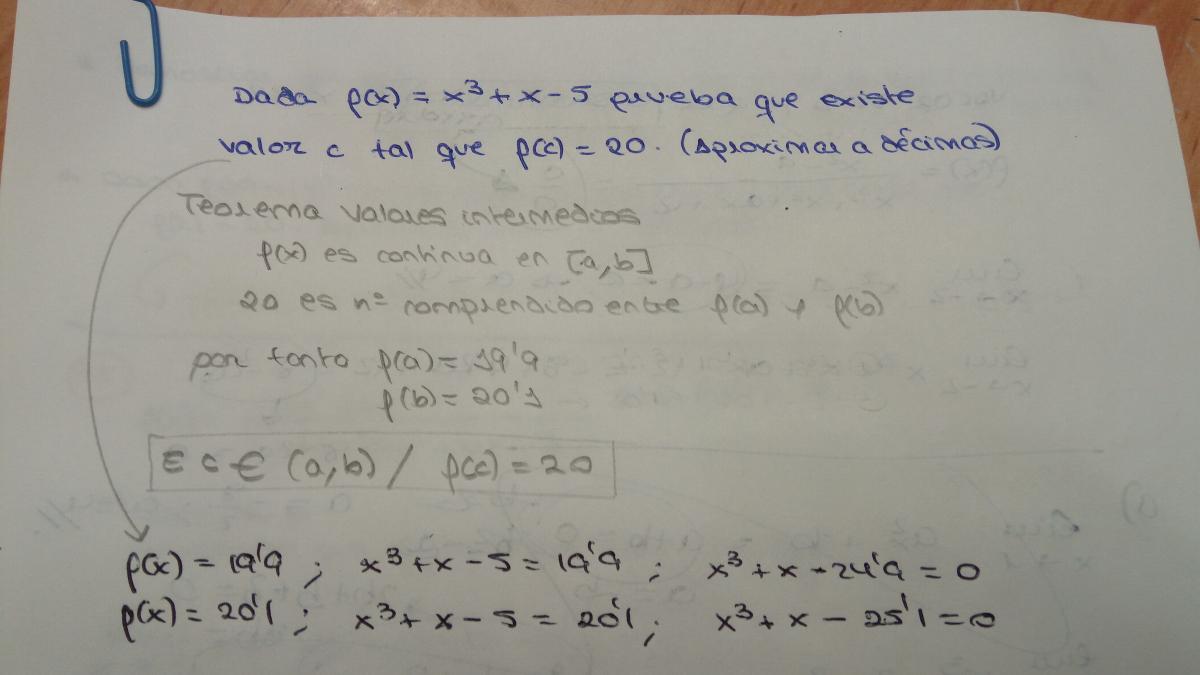 Dada f(x) = x³ + x - 5 prueba que existe
valor c tal que f(c) = 20. (Aproximar a décimas)
Teorema valores intermedios
f(x) es continua en [a,b]
20 es nº comprendido entre f(a) y f(b)
por tanto f(a) = 19'9
f(b) = 20'1
∃ c ∈ (a,b) / f(c) = 20
f(x) = 19'9 ; x³ + x - 5 = 19'9 ; x³ + x - 24'9 = 0
f(x) = 20'1 ; x³ + x - 5 = 20'1 ; x³ + x - 25'1 = 0